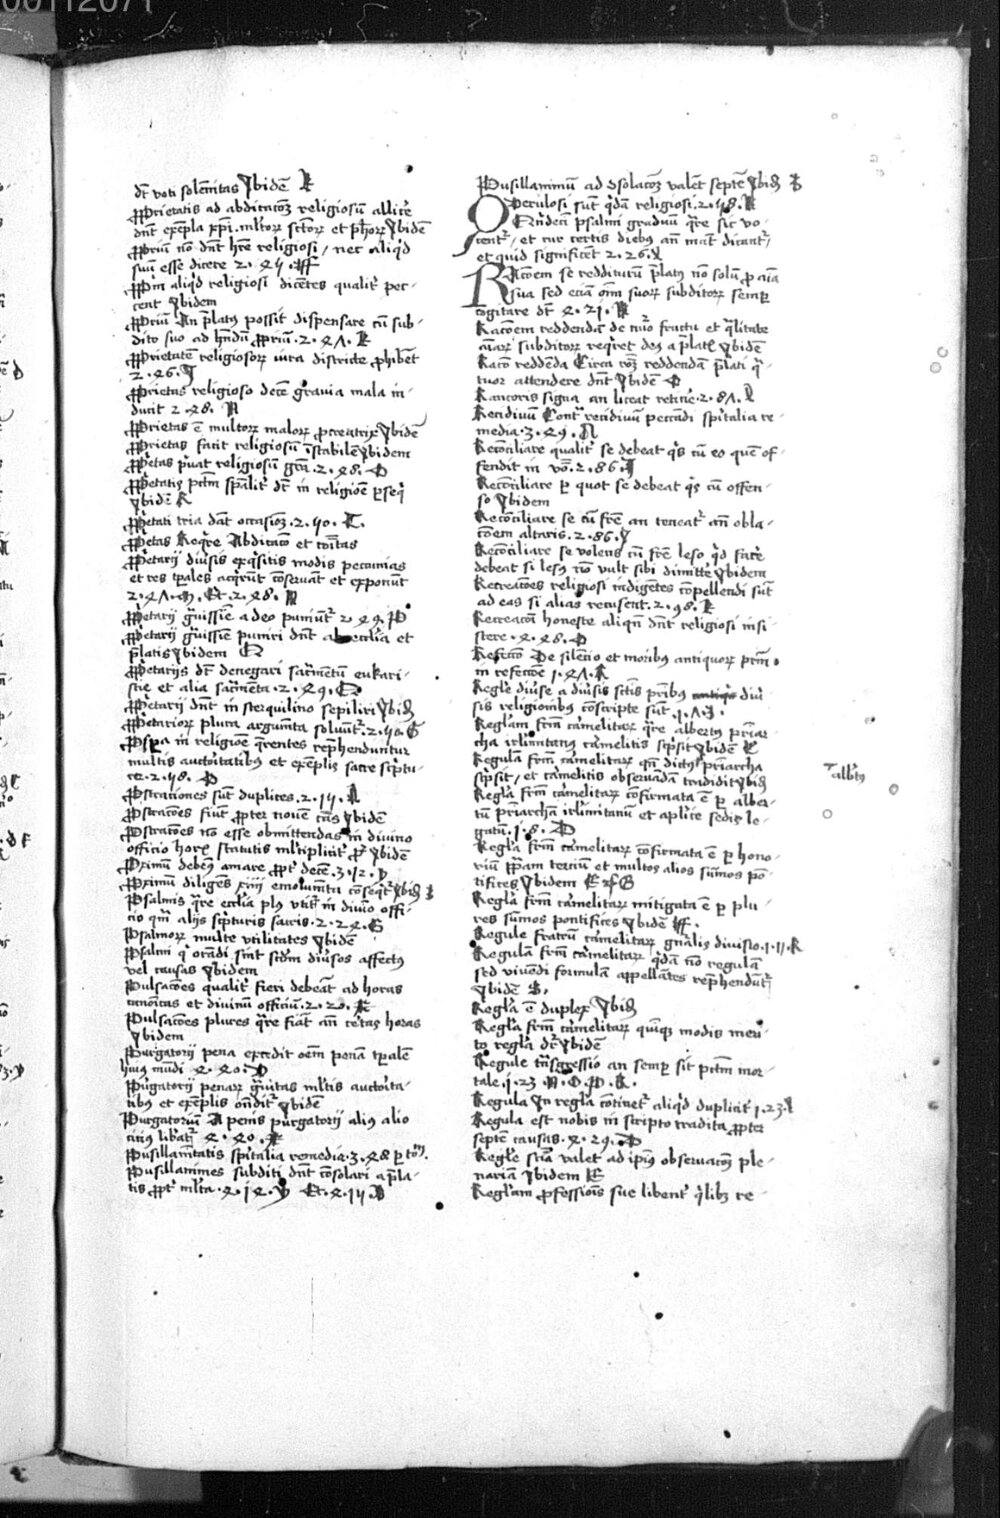 00112071
dr̄ voti solēnitas Ybidē R
Prietatis ad abdicacōꝫ religiosū allicē
dn̄t exēpla xpi mltorꝝ sctorꝝ et phorꝝ Ybidē
Priū nō dn̄t hr̄e religiosi / nec aliqd
suū esse dicere 2 · 47 · FF
Prm̄ aliqd religiosi dicētes qualit̄ pec-
cent Ybidem
Priū An p̄latꝰ possit dispensare cū sub-
dito suo ad hn̄dū Priū · 2 · 47 · R
Prietatē religiosorꝝ iura districte phibēt
2 · 46 · I
Prietas religioso decē gravia mala in-
ducit 2 · 48 · A
Prietas ē multorꝝ malorꝝ pcreatrix Ybidē
Prietas facit religiosū īstabilē Ybidem
Pr̄etas p̄uat religiosū grā · 2 · 48 · O
Pr̄etatis pctm̄ spālit̄ dr̄ in religiōe p̄seqi
Ybidē R
Pr̄etati tria dāt occasiōꝫ · 2 · 50 · T ·
Pr̄etas Reqre Abdicaco et cōitas
Pr̄etarij diūsis exqsitis modis pecunias
et res tp̄ales acqrūt cōseruāt et exponūt
2 · 47 · M · Et · 2 · 48 · N
Pr̄etarij ḡuissīe a deo puniūt̄ 2 · 49 · P
Pr̄etarij ḡuissīe puniri dn̄t ab ecclīa et
p̄latis Ybidem
Pr̄etarijs dr̄ denegari sacr̄mētū eukari-
stie et alia sacr̄mēta · 2 · 49 · O
Pr̄etarij dn̄t in sterquilino sepiliri Ybidē
Pr̄etariorꝝ plura argumēta soluūt̄ · 2 · 50 · G
in religiōe q̄rentes rep̄henduntur
multis auctoritatibꝰ et exēplis sacre sc̄ptu-
re · 2 · 50 · P
Pstraciones sūt duplices · 2 · 15 · A
Pstracōes fiūt ppter nouē cās Ybidē
Pstracōes nō esse obmittendas in diuino
officio horeꝫ statutis mltiplicit̄ pt̄ Ybidē
Pximū debeꝰ amare ppt̄ decē · 3 · 12 · y
Pximū diligēs xiiij emolumēta cōseqt̄ Ybidē
Psalmis q̄re ecclīa plꝰ vtit̄ in diuīo offi-
cio qm̄ alijs sc̄pturis sacris · 2 · 24 · G
Psalmorꝝ multe vtilitates Ybidē
Psalmi q̄ orādi sint scd̄m diūsos affectꝰ
vel causas Ybidem
Pulsacōes qualit̄ fieri debeāt ad horas
canoīcas et diuinū officiū · 2 · 20 · R
Pulsacōes plures q̄re fiāt an̄ cētas horas
Ybidem
Purgatorij pena excedit oēm penā tp̄alē
huiꝰ mūdi 4 · 40 · D
Purgatorij penarꝝ ḡuitas mltis auctorita-
tibꝰ et exēplis ondit̄ Ybidē
Purgatoriū A penis purgatorij aliꝰ alio
ciciꝰ libat̄ 4 · 40 · R
Pusillanītatis spūalia remedia · 3 · 48 p totū ·
Pusillanimes subditi dn̄t cōsolari a p̄la-
tis ppt̄ mlta · 4 · 14 · y Et · 4 · 15 · D
Pusillanimū ad cōsolacōꝫ valēt septē Ybidē
Querulosi sūt qdā religiosi · 2 · 48 · R
Quīdeci psalmi graduū q̄re sic vo-
cent̄ / et cur certis diebꝰ an̄ mat̄ dicant̄ /
et quid significent 2 · 26 · X
Racōem se redditurū p̄latꝰ nō solū p aīa
sua sed eciā om̄ suorꝝ subditorꝝ semp
cogitare dꝫ 4 · 21 · R
Racōem reddendā de tuo fructu et q̄litate
aīarꝝ subditorꝝ reqret deꝰ a p̄latꝭ Ybidē
Raco reddēda Circa racōꝫ reddendā p̄lati q̄-
tuor attendere dn̄t Ybidē O
Rancoris signa an liceat retiner̄ · 2 · 87 · X
Recidiuū Cont̄ recidiuū peccādi spūalia re-
media · 3 · 49 · N
Recōciliare qualit̄ se debeat qs cū eo quē of-
fendit in vō · 2 · 86 · I
Recōciliare p quot se debeat qs cū offen-
so Ybidem
Recōciliare se cū fr̄e an teneat̄ an̄ obla-
cōem altaris · 2 · 86 · Y
Recōciliare se volens cū fr̄e leso qd facē
debeat si lesꝰ nō vult sibi dimittē Ybidem
Recreacōes religiosi indigētes cōpellendi sūt
ad eas si alias recusent · 2 · 98 · R
Recreacōi honeste aliqn̄ dn̄t religiosi insi-
stere · 4 · 48 · O
Refectō De silēcio et moribꝰ antiquorꝝ pr̄m
in refectōe 1 · 47 · R
Regle diūse a diūsis sctis pr̄ibꝰ diū-
sis religionibꝰ cōscripte sūt · 1 · 7 · I ·
Reglam frm̄ carmelitarꝝ q̄re albertꝰ pr̄iar-
cha irl̄imitanꝰ carmelitis sc̄psit Ybidē K
Regulā frm̄ carmelitarꝝ qn̄ dictꝰ pr̄iarcha
sc̄psit / et carmelitis obseruadā tradidit Ybidē
albtꝰ
Regla frm̄ carmelitarꝝ cōfirmata ē p alber-
tū pr̄iarchā irl̄imitanū et aplīce sedis le-
gatū · 1 · 8 · D
Regla frm̄ carmelitarꝝ cōfirmata ē p hono-
riū ppam terciū et multos alios sūmos pō-
tifices Ybidem E F G
Regla frm̄ carmelitarꝝ mitigata ē p plu-
res sūmos pontifices Ybidē FF ·
Regule fratrū carmelitarꝝ gn̄alis diuisio · 1 · 11 · R
Regulā frm̄ carmelitarꝝ qdā nō regulā
sed viuēdi formulā appellātes rep̄hendūt̄
Ybidē S ·
Regla ē duplex Ybidē
Regla frm̄ carmelitarꝝ quinqꝫ modis meri-
to regla dr̄ Ybidē
Regule trāsgressio an semp sit pctm̄ mor-
tale · 1 · 23 · N · O · P · R ·
Regula In regla cōtinet̄ aliqd duplicit̄ 1 · 23 · X
Regula est nobis in scripto tradita ppter
septē causas · 4 · 29 · D
Regle sciā valet ad ipiꝰ obseruacōꝫ ple-
nariā Ybidem E
Reglam pfessiōis sue libent̄ qlibꝫ re-